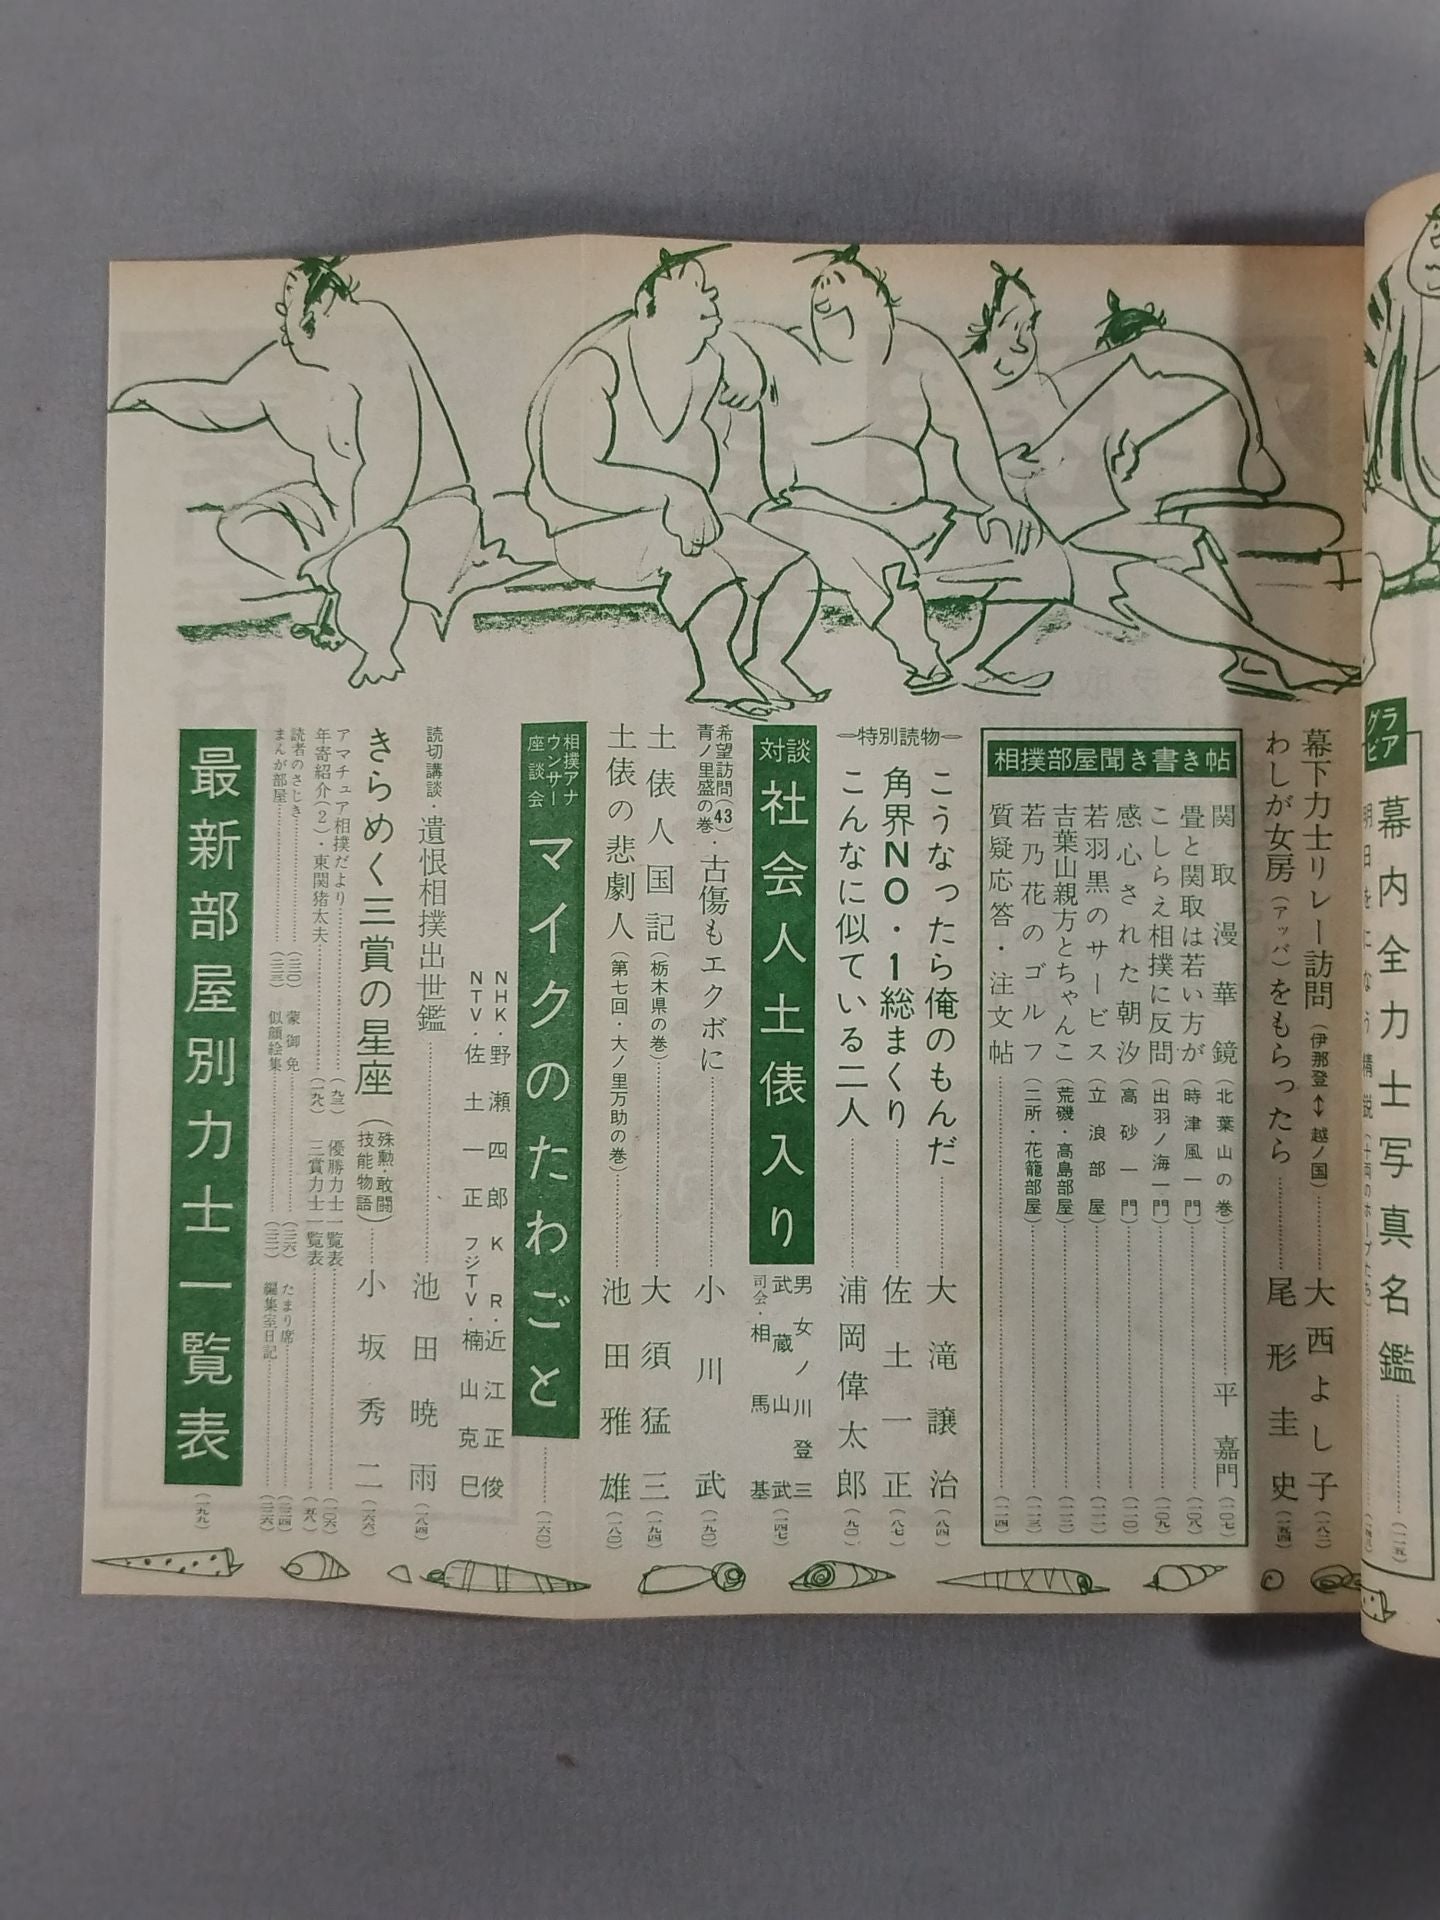 グラビア
幕内全力士写真名鑑
(一一五)
明日をになう精鋭(十両のホープたち)
幕下力士リレー訪問(伊那登↔越ノ国)
大西よし子
(一八二)
わしが女房(アッパ)をもらったら
尾形圭史
(一五四)
相撲部屋聞き書き帖
関取漫華鏡(北葉山の巻)
平嘉門
(一〇七)
畳と関取は若い方が(時津風一門)
(一〇八)
こしらえ相撲に反問(出羽ノ海一門)
(一〇九)
感心された朝汐(高砂一門)
(一一〇)
若羽黒のサービス(立浪部屋)
(一一一)
吉葉山親方とちゃんこ(荒磯・高島部屋)
(一一二)
若乃花のゴルフ(二所・花籠部屋)
(一一三)
質疑応答・注文帖
(一一四)
特別読物
こうなったら俺のもんだ
大滝譲治
(八四)
角界NO・1総まくり
佐土一正
(八七)
こんなに似ている二人
浦岡偉太郎
(九〇)
対談
社会人土俵入り
男女ノ川登三
武蔵山武
司会・相馬基
(一四七)
希望訪問(43)
青ノ里盛の巻・古傷もエクボに
小川武
(一九〇)
土俵人国記(栃木県の巻)
大須猛三
(一九四)
土俵の悲劇人(第七回・大ノ里万助の巻)
池田雅雄
(一八〇)
相撲アナウンサー座談会
マイクのたわごと
(一六〇)
NHK・野瀬四郎
KR・近江正俊
NTV・佐土一正
フジTV・楠山克巳
読切講談・遺恨相撲出世鑑
池田暁雨
(一八四)
きらめく三賞の星座(殊勲・敢闘技能物語)
小坂秀二
(一六六)
アマチュア相撲だより
(九三)
優勝力士一覧表
(一〇六)
年寄紹介(2)・東関猪太夫
(一九八)
三賞力士一覧表
(一五八)
読者のさじき
(二三〇)
蒙御免
(二二六)
たまり席
(二三四)
まんが部屋
(二二三)
似顔絵集
(二二二)
編集室日記
(二三六)
最新部屋別力士一覧表
(一九九)